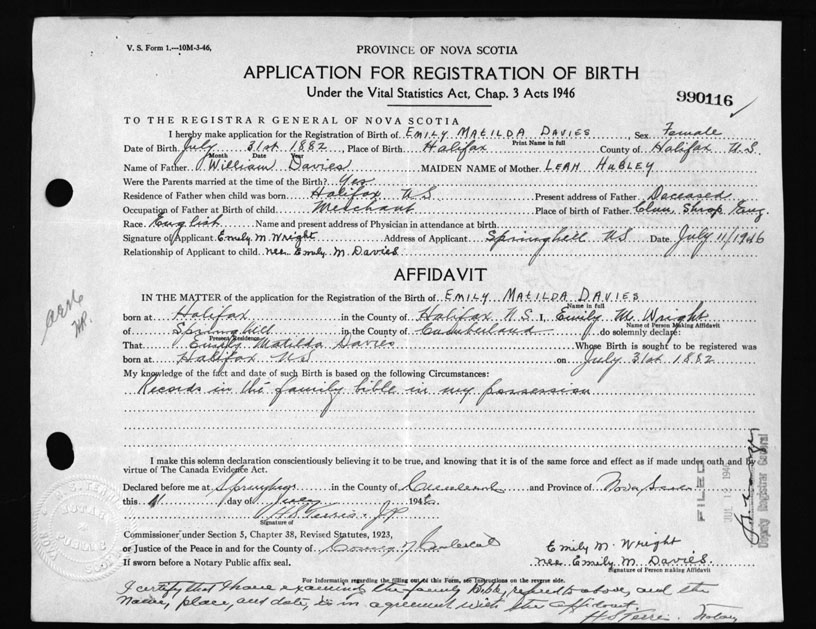 V. S. Form 1.—10M-3-46,
PROVINCE OF NOVA SCOTIA
APPLICATION FOR REGISTRATION OF BIRTH
Under the Vital Statistics Act, Chap. 3 Acts 1946
990116
TO THE REGISTRAR GENERAL OF NOVA SCOTIA
I hereby make application for the Registration of Birth of EMILY MATILDA DAVIES, Sex Female
Print Name in full
Date of Birth July 31st 1882, Place of Birth Halifax County of Halifax N.S.
Month Date Year
Name of Father William Davies MAIDEN NAME of Mother LEAH HUBLEY
Were the Parents married at the time of the Birth? Yes
Residence of Father when child was born Halifax NS Present address of Father Deceased
Occupation of Father at Birth of child Merchant Place of birth of Father Clun Shrop Eng.
Race English Name and present address of Physician in attendance at birth
Signature of Applicant Emily M. Wright Address of Applicant Springhill NS Date July 11/1946
Relationship of Applicant to child nee Emily M Davies
AFFIDAVIT
IN THE MATTER of the application for the Registration of the Birth of EMILY MATILDA DAVIES
Name in full
born at Halifax in the County of Halifax N.S. I, Emily M. Wright
Name of Person Making Affidavit
of Springhill in the County of Cumberland do solemnly declare:
Present Residence
That Emily Matilda Davies Whose Birth is sought to be registered was
born at Halifax NS on July 31st 1882
My knowledge of the fact and date of such Birth is based on the following Circumstances:
Records in the family bible in my possession
I make this solemn declaration conscientiously believing it to be true, and knowing that it is of the same force and effect as if made under oath and by
virtue of The Canada Evidence Act.
Declared before me at Springhill in the County of Cumberland and Province of Nova Scotia
this 11 day of July 1946
H S Terris J.P.
Signature of
Commissioner under Section 5, Chapter 38, Revised Statutes, 1923,
or Justice of the Peace in and for the County of
If sworn before a Notary Public affix seal.
Emily M. Wright
nee Emily M. Davies.
Signature of Person making Affidavit
For Information regarding the filling out of this Form, see Instructions on the reverse side.
I certify that I have examined the family Bible, referred to above, and the
Name, place, and date, is in agreement with the affidavit.
H S Terris Notary
FILED
Deputy Registrar General